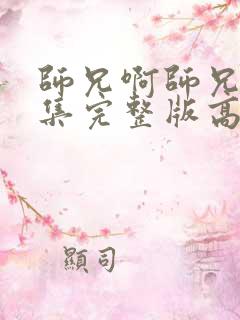 師兄啊師兄
集完整版高
顯司